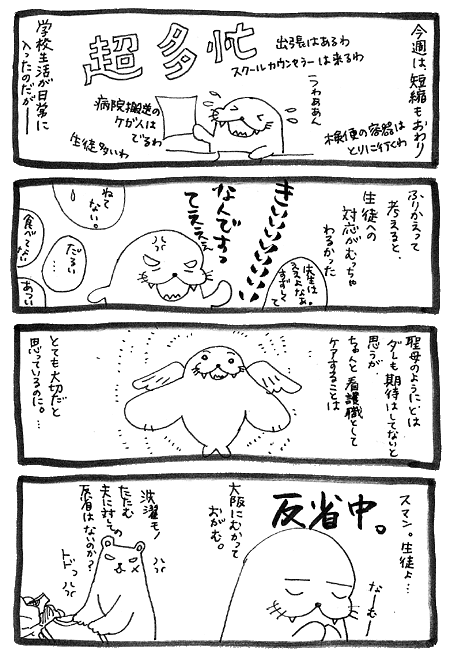 今週は、短縮もおわり
学校生活が日常に
入ったのだが――
超多忙
出張はあるわ
スクールカウンセラーは来るわ
うわぁあん
検便の容器は
とりに行くわ
病院搬送の
ケガ人は
でるわ
生徒多いわ
ふりかえって
考えると、
生徒への
対応がむっちゃ
わるかった
先生は
ええよなあ。
すずして
きいいいいい
なんですっ
てえええ
ねて
ない。
だるい
…
食べてない
あつい
聖母のように…とは
ダレも期待はしてないと
思うが
ちゃんと看護職として
ケアすることは
とても大切だと
思っているのに。…
スマン。生徒よ…
なーむー
反省中。
大阪にむかって
おがむ。
洗濯モノ
たたむ
夫に対しての
反省はないのか?
トドっ